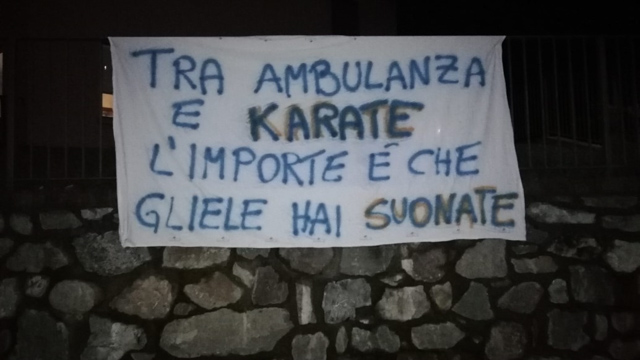 TRA AMBULANZA
E KARATE
L'IMPORTE È CHE
GLIELE HAI SUONATE